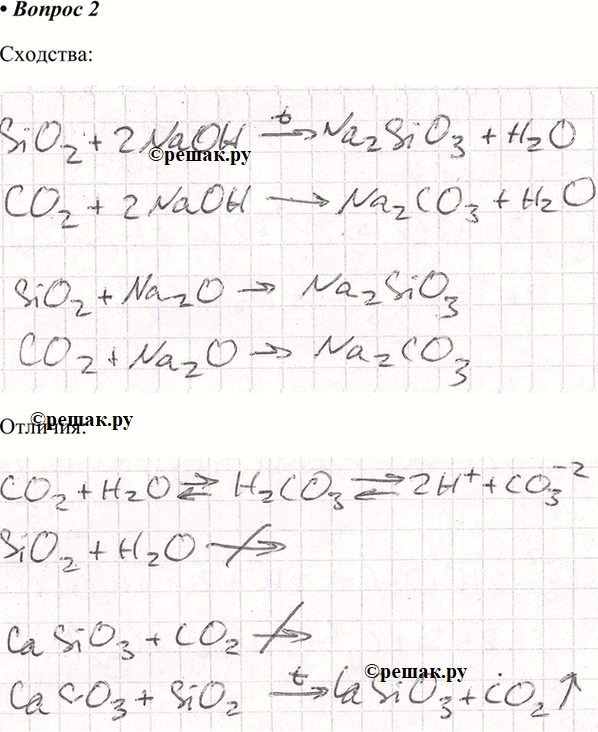 • Вопрос 2
Сходства:
SiO₂ + 2NaOH —t→ Na₂SiO₃ + H₂O
©решак.ру
CO₂ + 2NaOH → Na₂CO₃ + H₂O
SiO₂ + Na₂O → Na₂SiO₃
CO₂ + Na₂O → Na₂CO₃
©решак.ру
Отличия:
CO₂ + H₂O ⇄ H₂CO₃ ⇄ 2H⁺ + CO₃⁻²
SiO₂ + H₂O ↛
CaSiO₃ + CO₂ ↛
©решак.ру
CaCO₃ + SiO₂ —t→ CaSiO₃ + CO₂↑